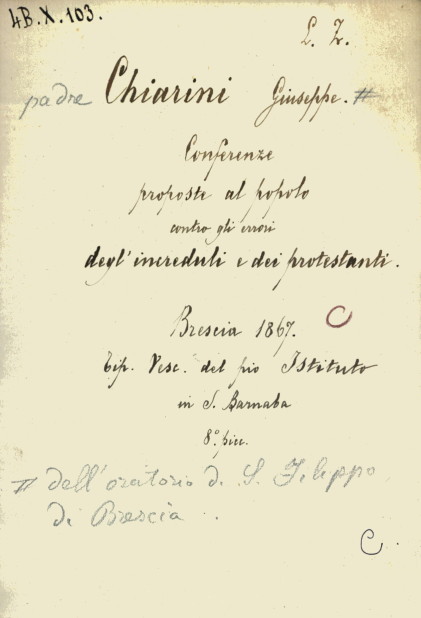 4B.X.103.
L. Z.
padre Chiarini Giuseppe. #
Conferenze
proposte al popolo
contro gli errori
degl' increduli e dei protestanti.
Brescia 1867. C
Tip. Vesc. del pio Istituto
in S. Barnaba
8º. picc.
# dell'oratorio di S. Filippo
di Brescia.
C.